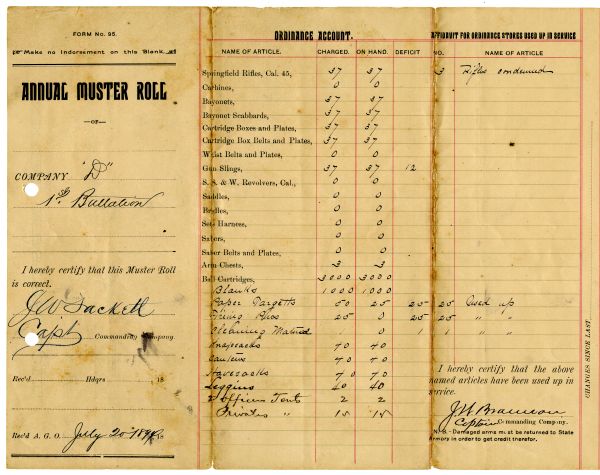 FORM No. 95.
Make no Indorsement on this Blank.
ANNUAL MUSTER ROLL
—OF—
COMPANY "D"
1st Battalion
I hereby certify that this Muster Roll
is correct.
J W Sackett
Capt Commanding Company.
Rec'd Hdqrs 18
Rec'd A. G. O. July 20 18
ORDINANCE ACCOUNT.
NAME OF ARTICLE. CHARGED. ON HAND. DEFICIT
Springfield Rifles, Cal. 45, 37 37
Carbines, 0 0
Bayonets, 37 37
Bayonet Scabbards, 37 37
Cartridge Boxes and Plates, 37 37
Cartridge Box Belts and Plates, 37 37
Waist Belts and Plates, 0 0
Gun Slings, 37 37 12
S. S. & W. Revolvers, Cal., 0 0
Saddles, 0 0
Bridles, 0 0
Sets Harness, 0 0
Sabers, 0 0
Saber Belts and Plates, 0 0
Arm Chests, 3 3
Ball Cartridges, 3000 3000
Blanks 1000 1000
Paper Targetts 50 25 25
Firing Pins 25 0 25
Cleaning Material 0 1
Knapsacks 40
Canteens 70
Haversacks 70
Leggins 40 40
2 Officers Tent 2 2
Privates " 15 15
AFFIDAVIT FOR ORDINANCE STORES USED UP IN SERVICE
NO. NAME OF ARTICLE
3 Rifles condemned
25 Used up
25 " "
1 " "
I hereby certify that the above
named articles have been used up in
service.
Captain Commanding Company.
N. B.—Damaged arms must be returned to State
Armory in order to get credit therefor.
CHANGES SINCE LAST